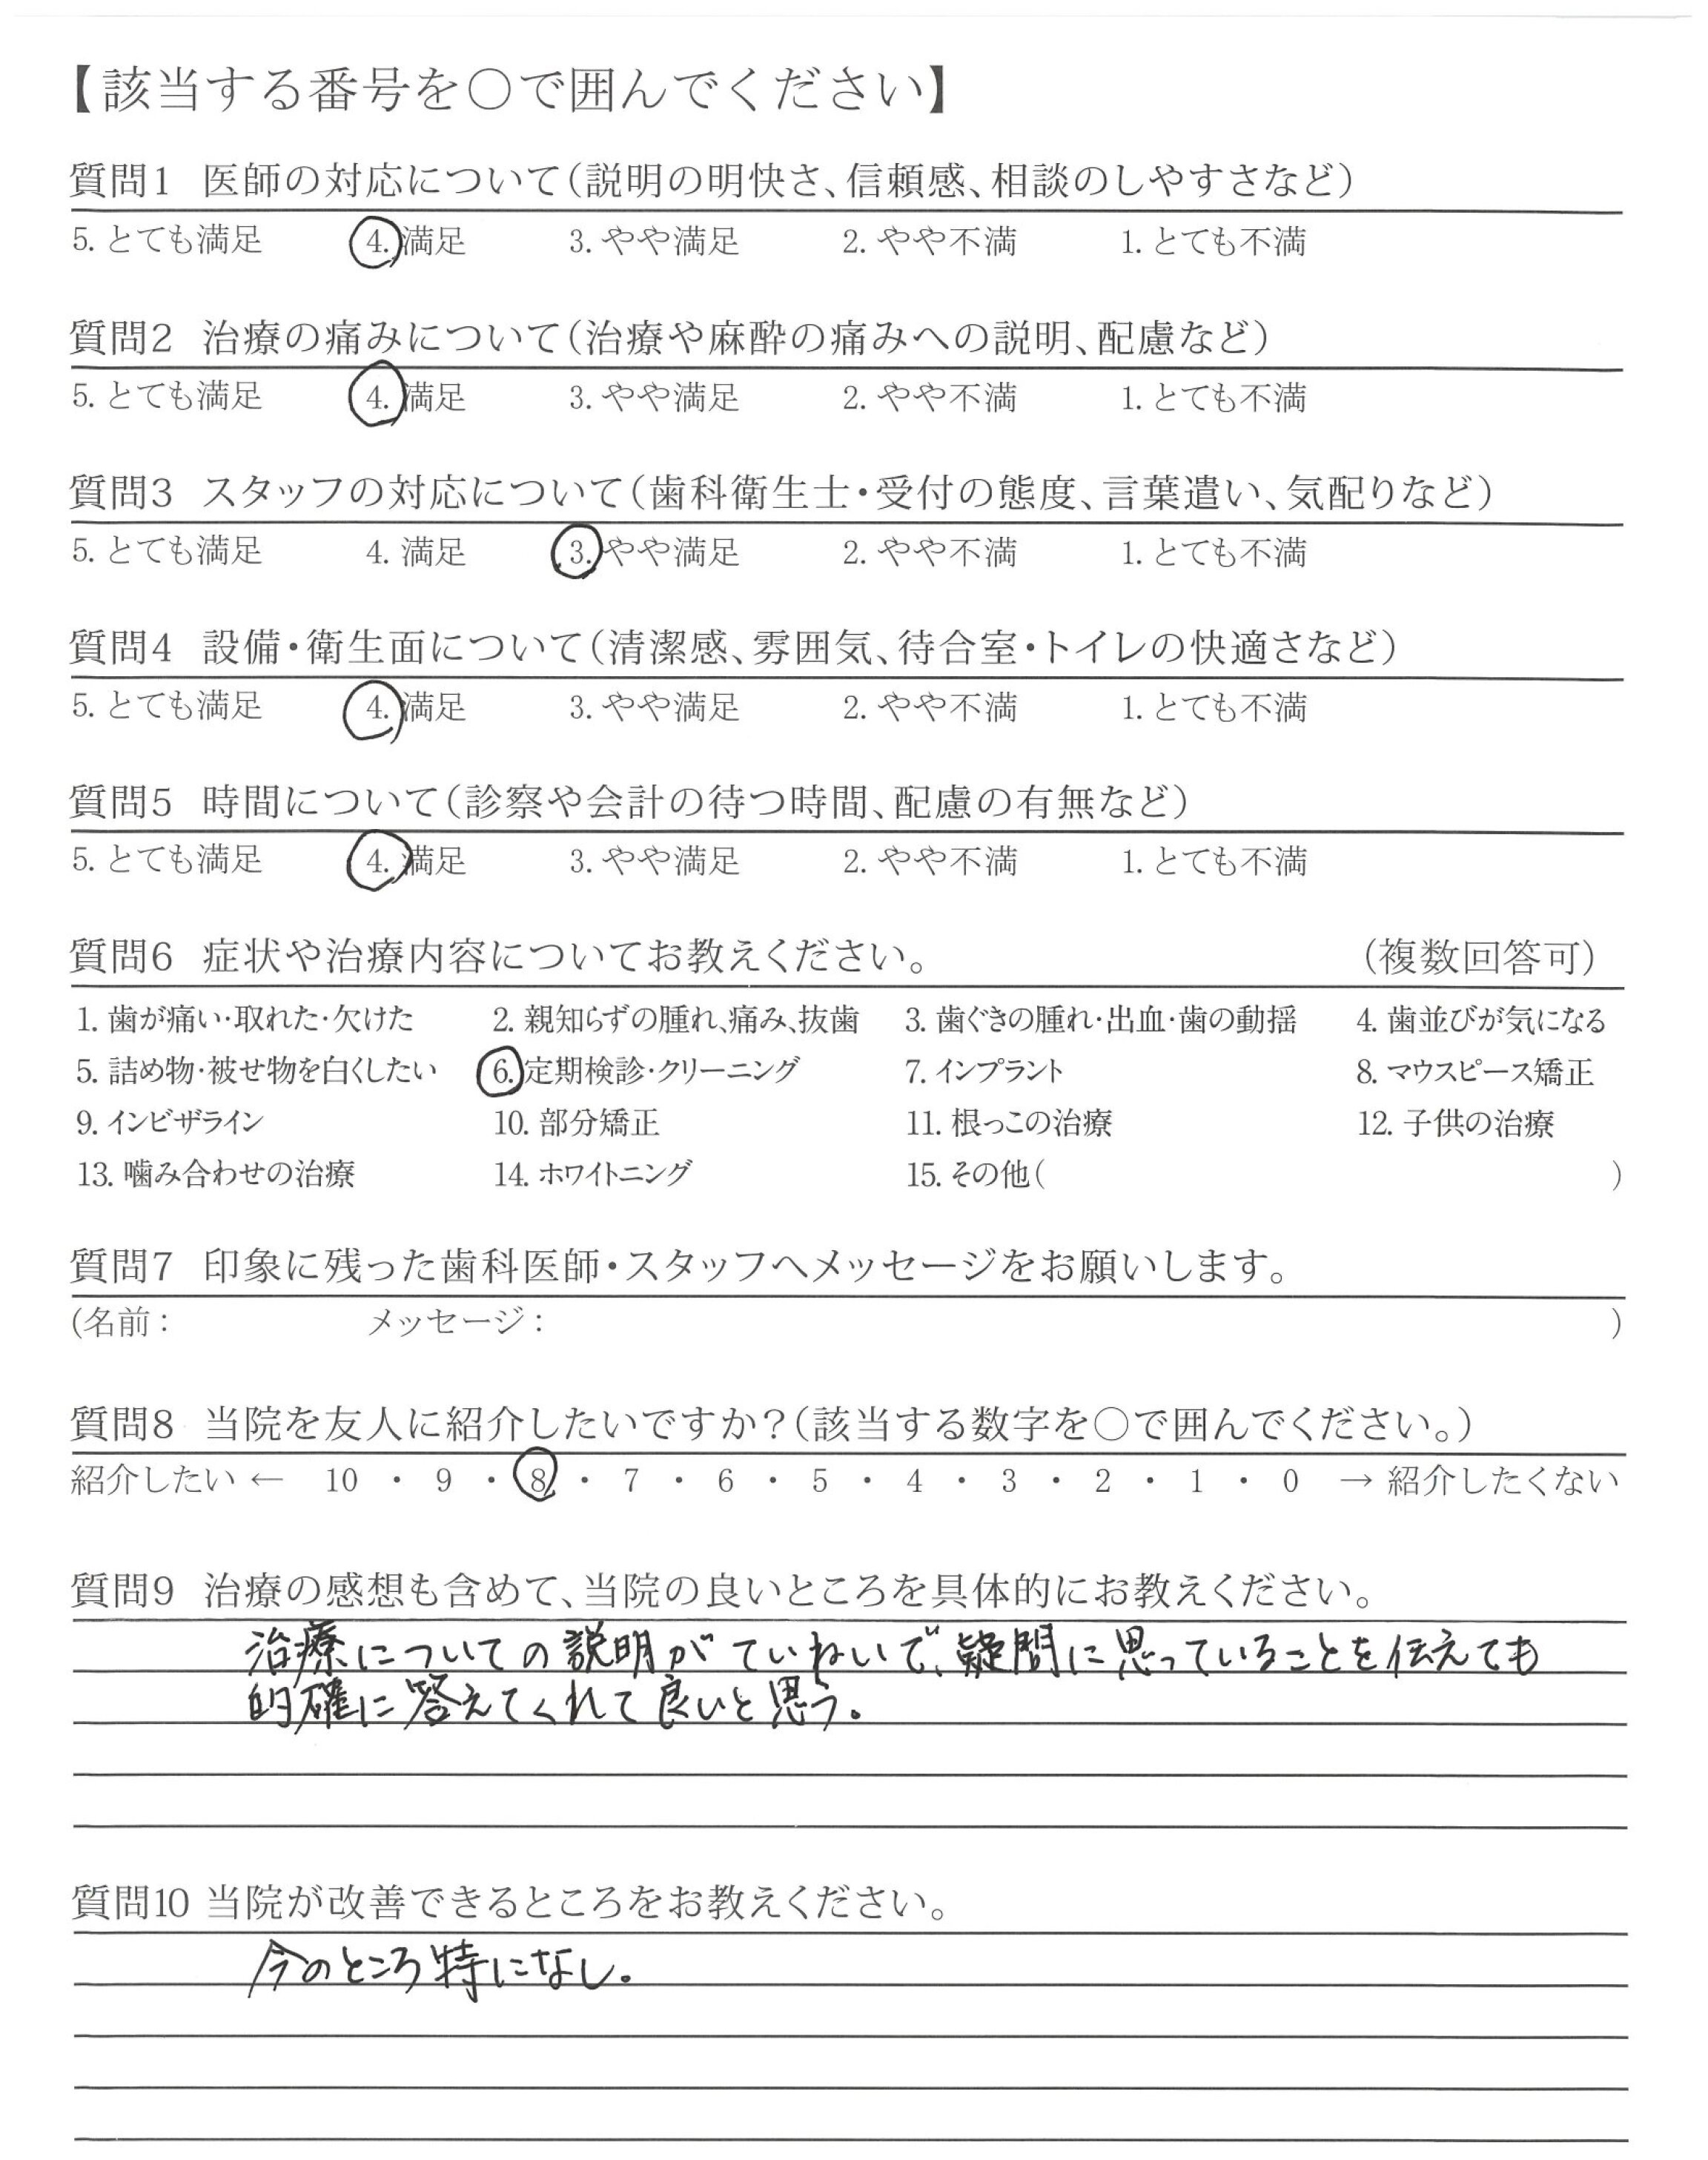 【該当する番号を○で囲んでください】
質問1 医師の対応について(説明の明快さ、信頼感、相談のしやすさなど)
5. とても満足 4. 満足 3. やや満足 2. やや不満 1. とても不満
質問2 治療の痛みについて(治療や麻酔の痛みへの説明、配慮など)
5. とても満足 4. 満足 3. やや満足 2. やや不満 1. とても不満
質問3 スタッフの対応について(歯科衛生士・受付の態度、言葉遣い、気配りなど)
5. とても満足 4. 満足 3. やや満足 2. やや不満 1. とても不満
質問4 設備・衛生面について(清潔感、雰囲気、待合室・トイレの快適さなど)
5. とても満足 4. 満足 3. やや満足 2. やや不満 1. とても不満
質問5 時間について(診察や会計の待つ時間、配慮の有無など)
5. とても満足 4. 満足 3. やや満足 2. やや不満 1. とても不満
質問6 症状や治療内容についてお教えください。 (複数回答可)
1. 歯が痛い・取れた・欠けた 2. 親知らずの腫れ、痛み、抜歯 3. 歯ぐきの腫れ・出血・歯の動揺 4. 歯並びが気になる
5. 詰め物・被せ物を白くしたい 6. 定期検診・クリーニング 7. インプラント 8. マウスピース矯正
9. インビザライン 10. 部分矯正 11. 根っこの治療 12. 子供の治療
13. 噛み合わせの治療 14. ホワイトニング 15. その他( )
質問7 印象に残った歯科医師・スタッフへメッセージをお願いします。
(名前: メッセージ: )
質問8 当院を友人に紹介したいですか?(該当する数字を○で囲んでください。)
紹介したい ← 10 ・ 9 ・ 8 ・ 7 ・ 6 ・ 5 ・ 4 ・ 3 ・ 2 ・ 1 ・ 0 → 紹介したくない
質問9 治療の感想も含めて、当院の良いところを具体的にお教えください。
治療についての説明がていねいで、疑問に思っていることを伝えても
的確に答えてくれて良いと思う。
質問10 当院が改善できるところをお教えください。
今のところ特になし。